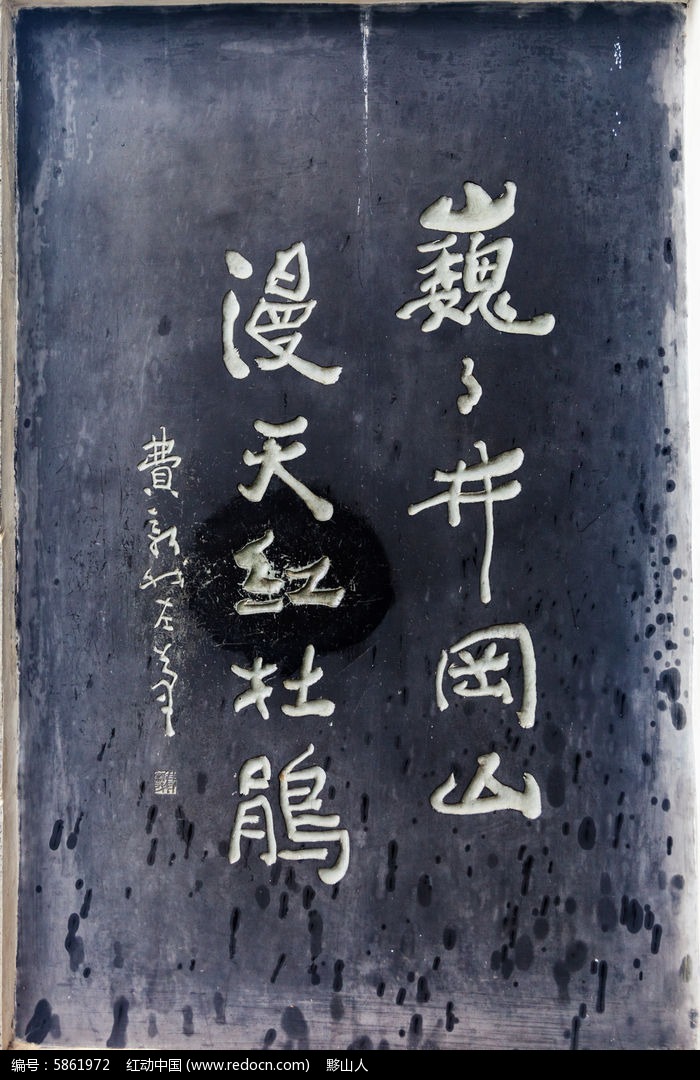 巍々井岡山
漫天紅杜鵑
費新我左筆
编号：5861972 红动中国 (www.redocn.com) 黟山人